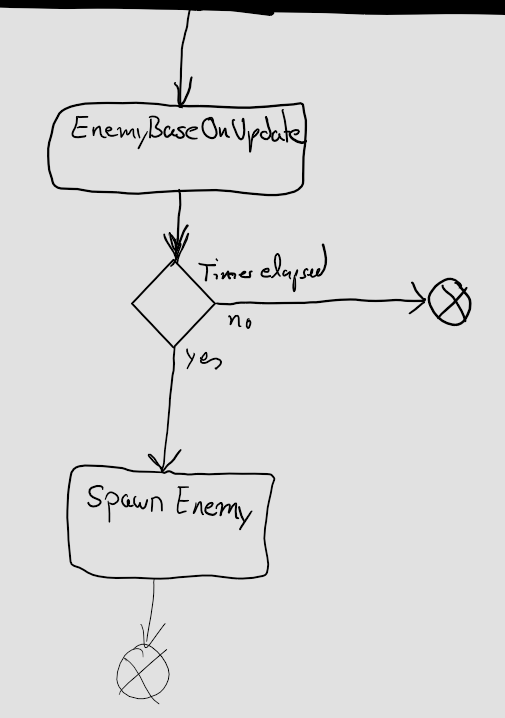 EnemyBaseOnUpdate
Timer elapsed
no
yes
Spawn Enemy